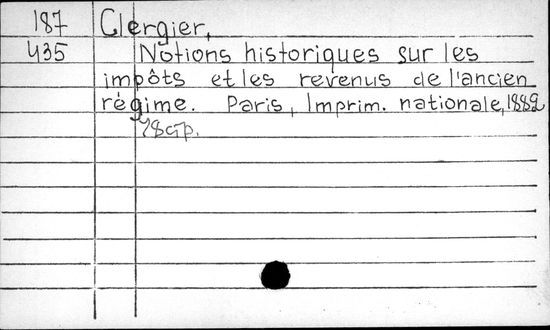 187 Clergier,
435 Notions historiques sur les
impôts et les revenus de l'ancien
régime. Paris, Imprim. nationale, 1882